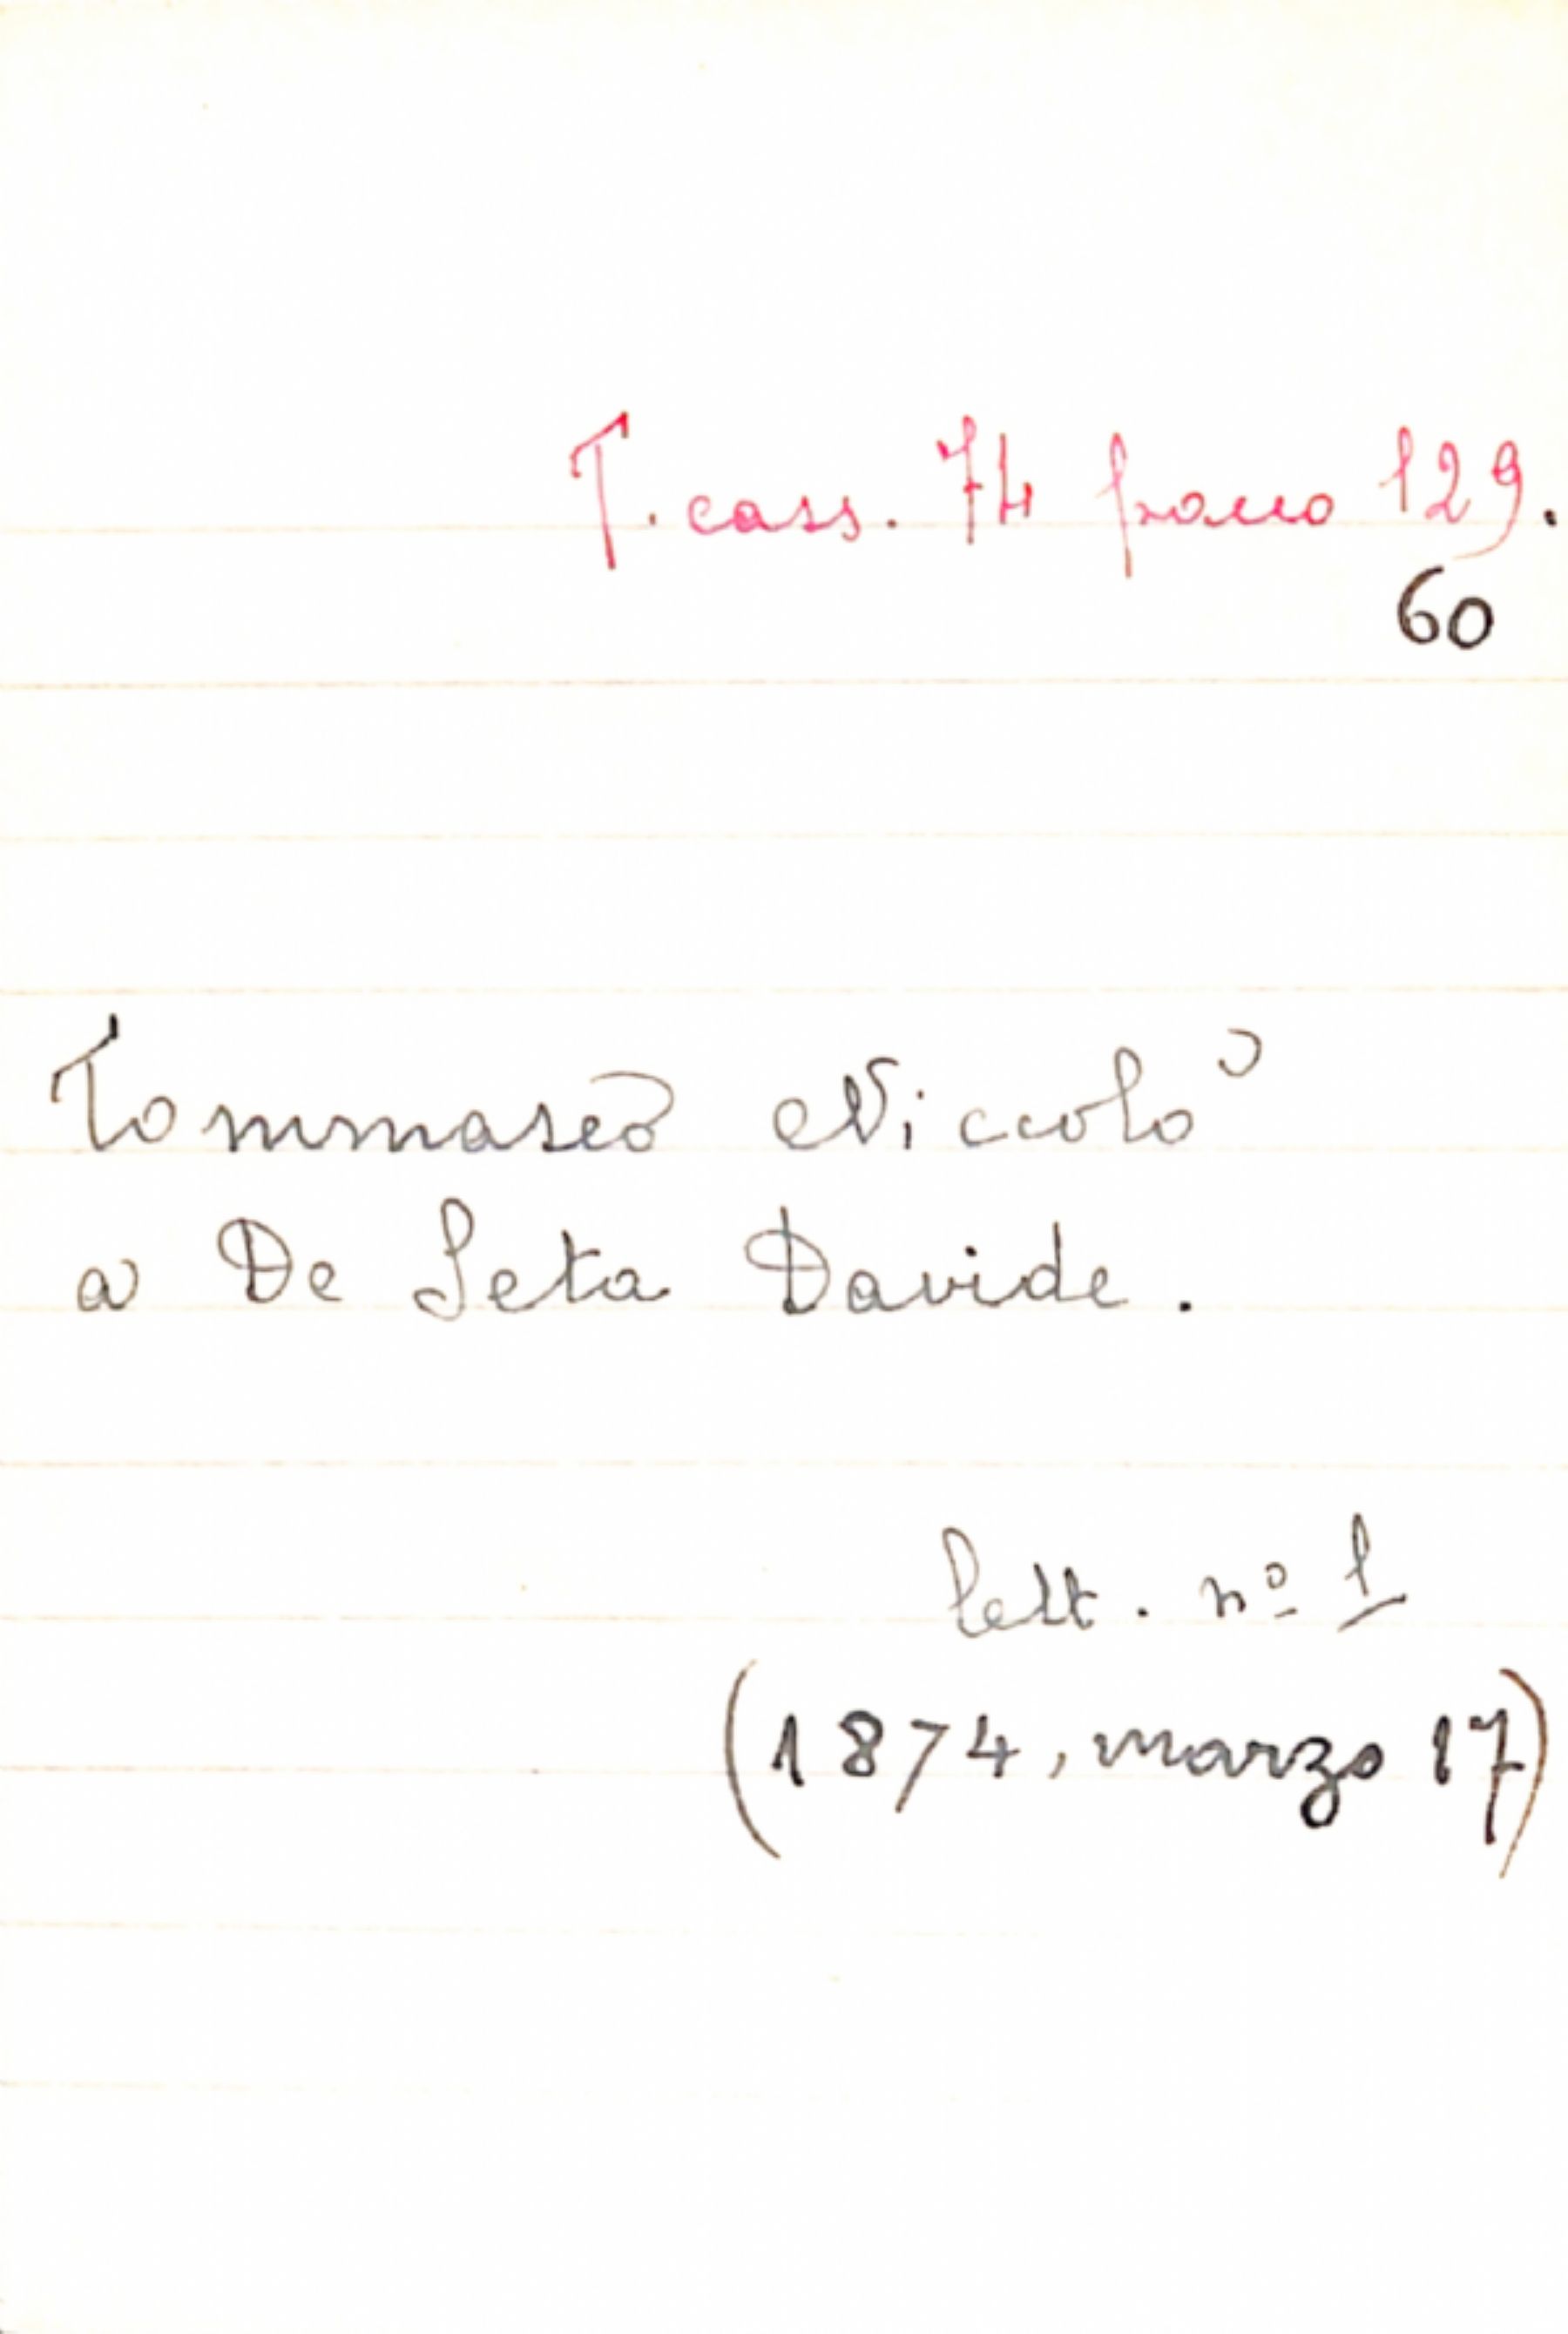 T. cass. 74 pacco 129.
60
Tommaseo Niccolò
a De Seta Davide.
lett. nº 1
(1874, marzo 17)